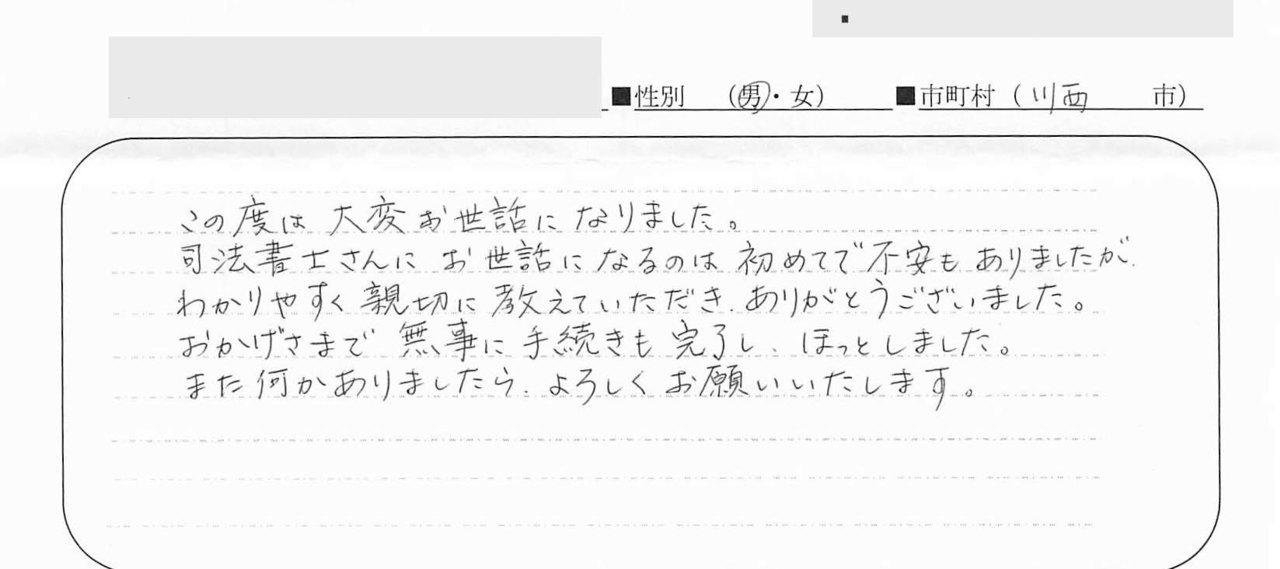 ■性別 (男・女) ■市町村(川西 市)
この度は大変お世話になりました。
司法書士さんにお世話になるのは初めてで不安もありましたが、
わかりやすく親切に教えていただき、ありがとうございました。
おかげさまで無事に手続きも完了し、ほっとしました。
また何かありましたら、よろしくお願いいたします。